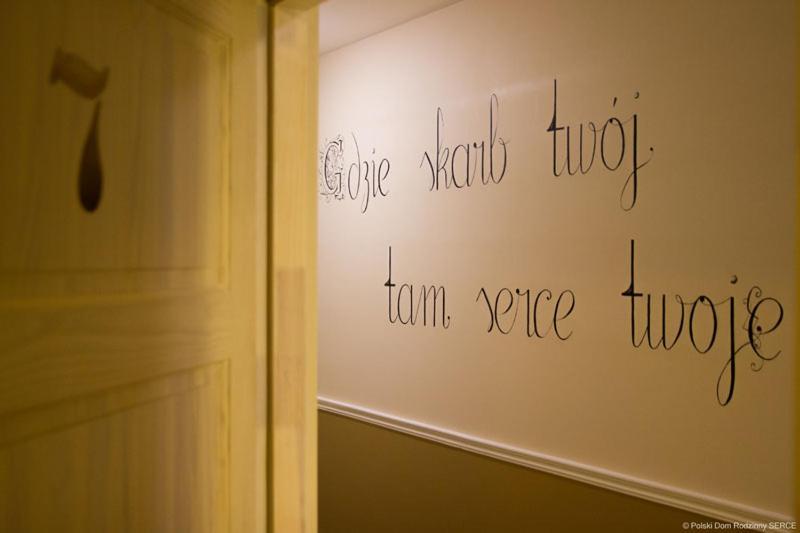 7
Gdzie skarb twój,
tam serce twoje
© Polski Dom Rodzinny SERCE